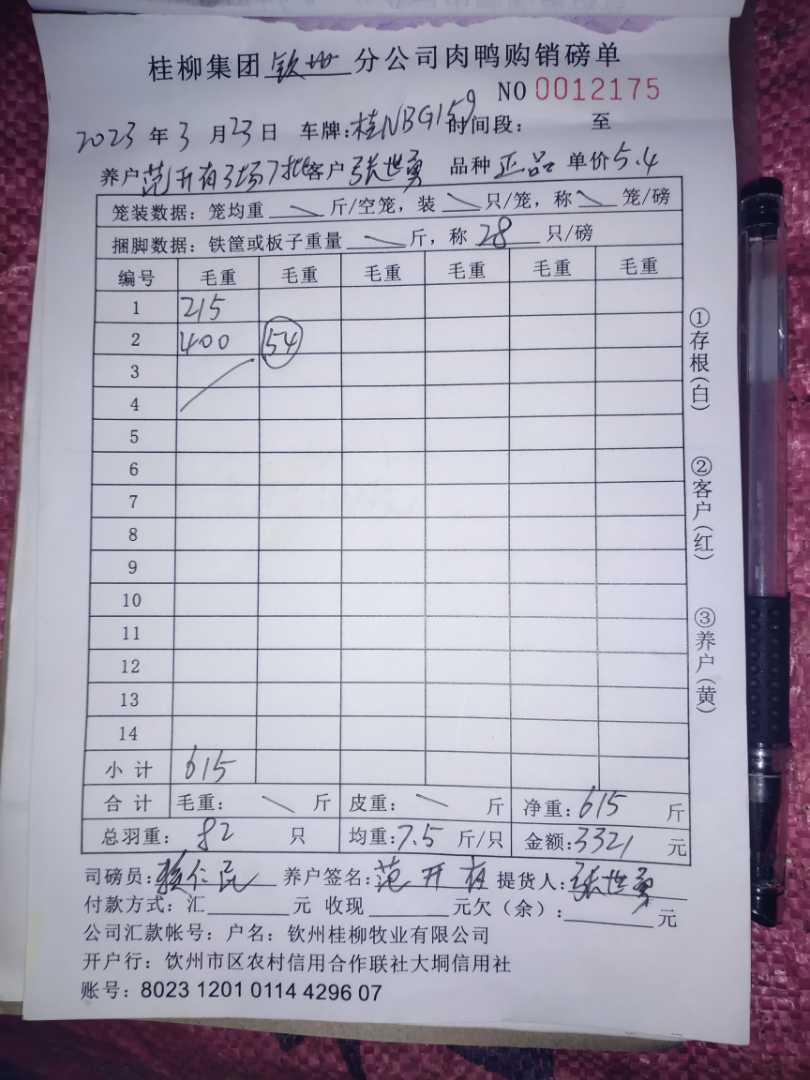 桂柳集团钦州分公司肉鸭购销磅单
NO 0012175
2023年3月23日 车牌:桂NBG159时间段: 至
养户范开有3场7批客户张世勇 品种正品单价5.4
笼装数据: 笼均重 斤/空笼, 装 只/笼, 称 笼/磅
捆脚数据: 铁筐或板子重量 斤, 称28只/磅
编号 毛重 毛重 毛重 毛重 毛重 毛重
1 215
2 400 54
3
4
5
6
7
8
9
10
11
12
13
14
小计 615
合计 毛重: 斤 皮重: 斤 净重:615斤
总羽重: 82 只 均重:7.5斤/只 金额:3321元
司磅员: 仁民 养户签名:范开有 提货人:张世勇
付款方式: 汇 元 收现 元欠(余): 元
公司汇款帐号: 户名: 钦州桂柳牧业有限公司
开户行: 钦州市区农村信用合作联社大垌信用社
账号: 8023 1201 0114 4296 07
①存根(白)
②客户(红)
③养户(黄)